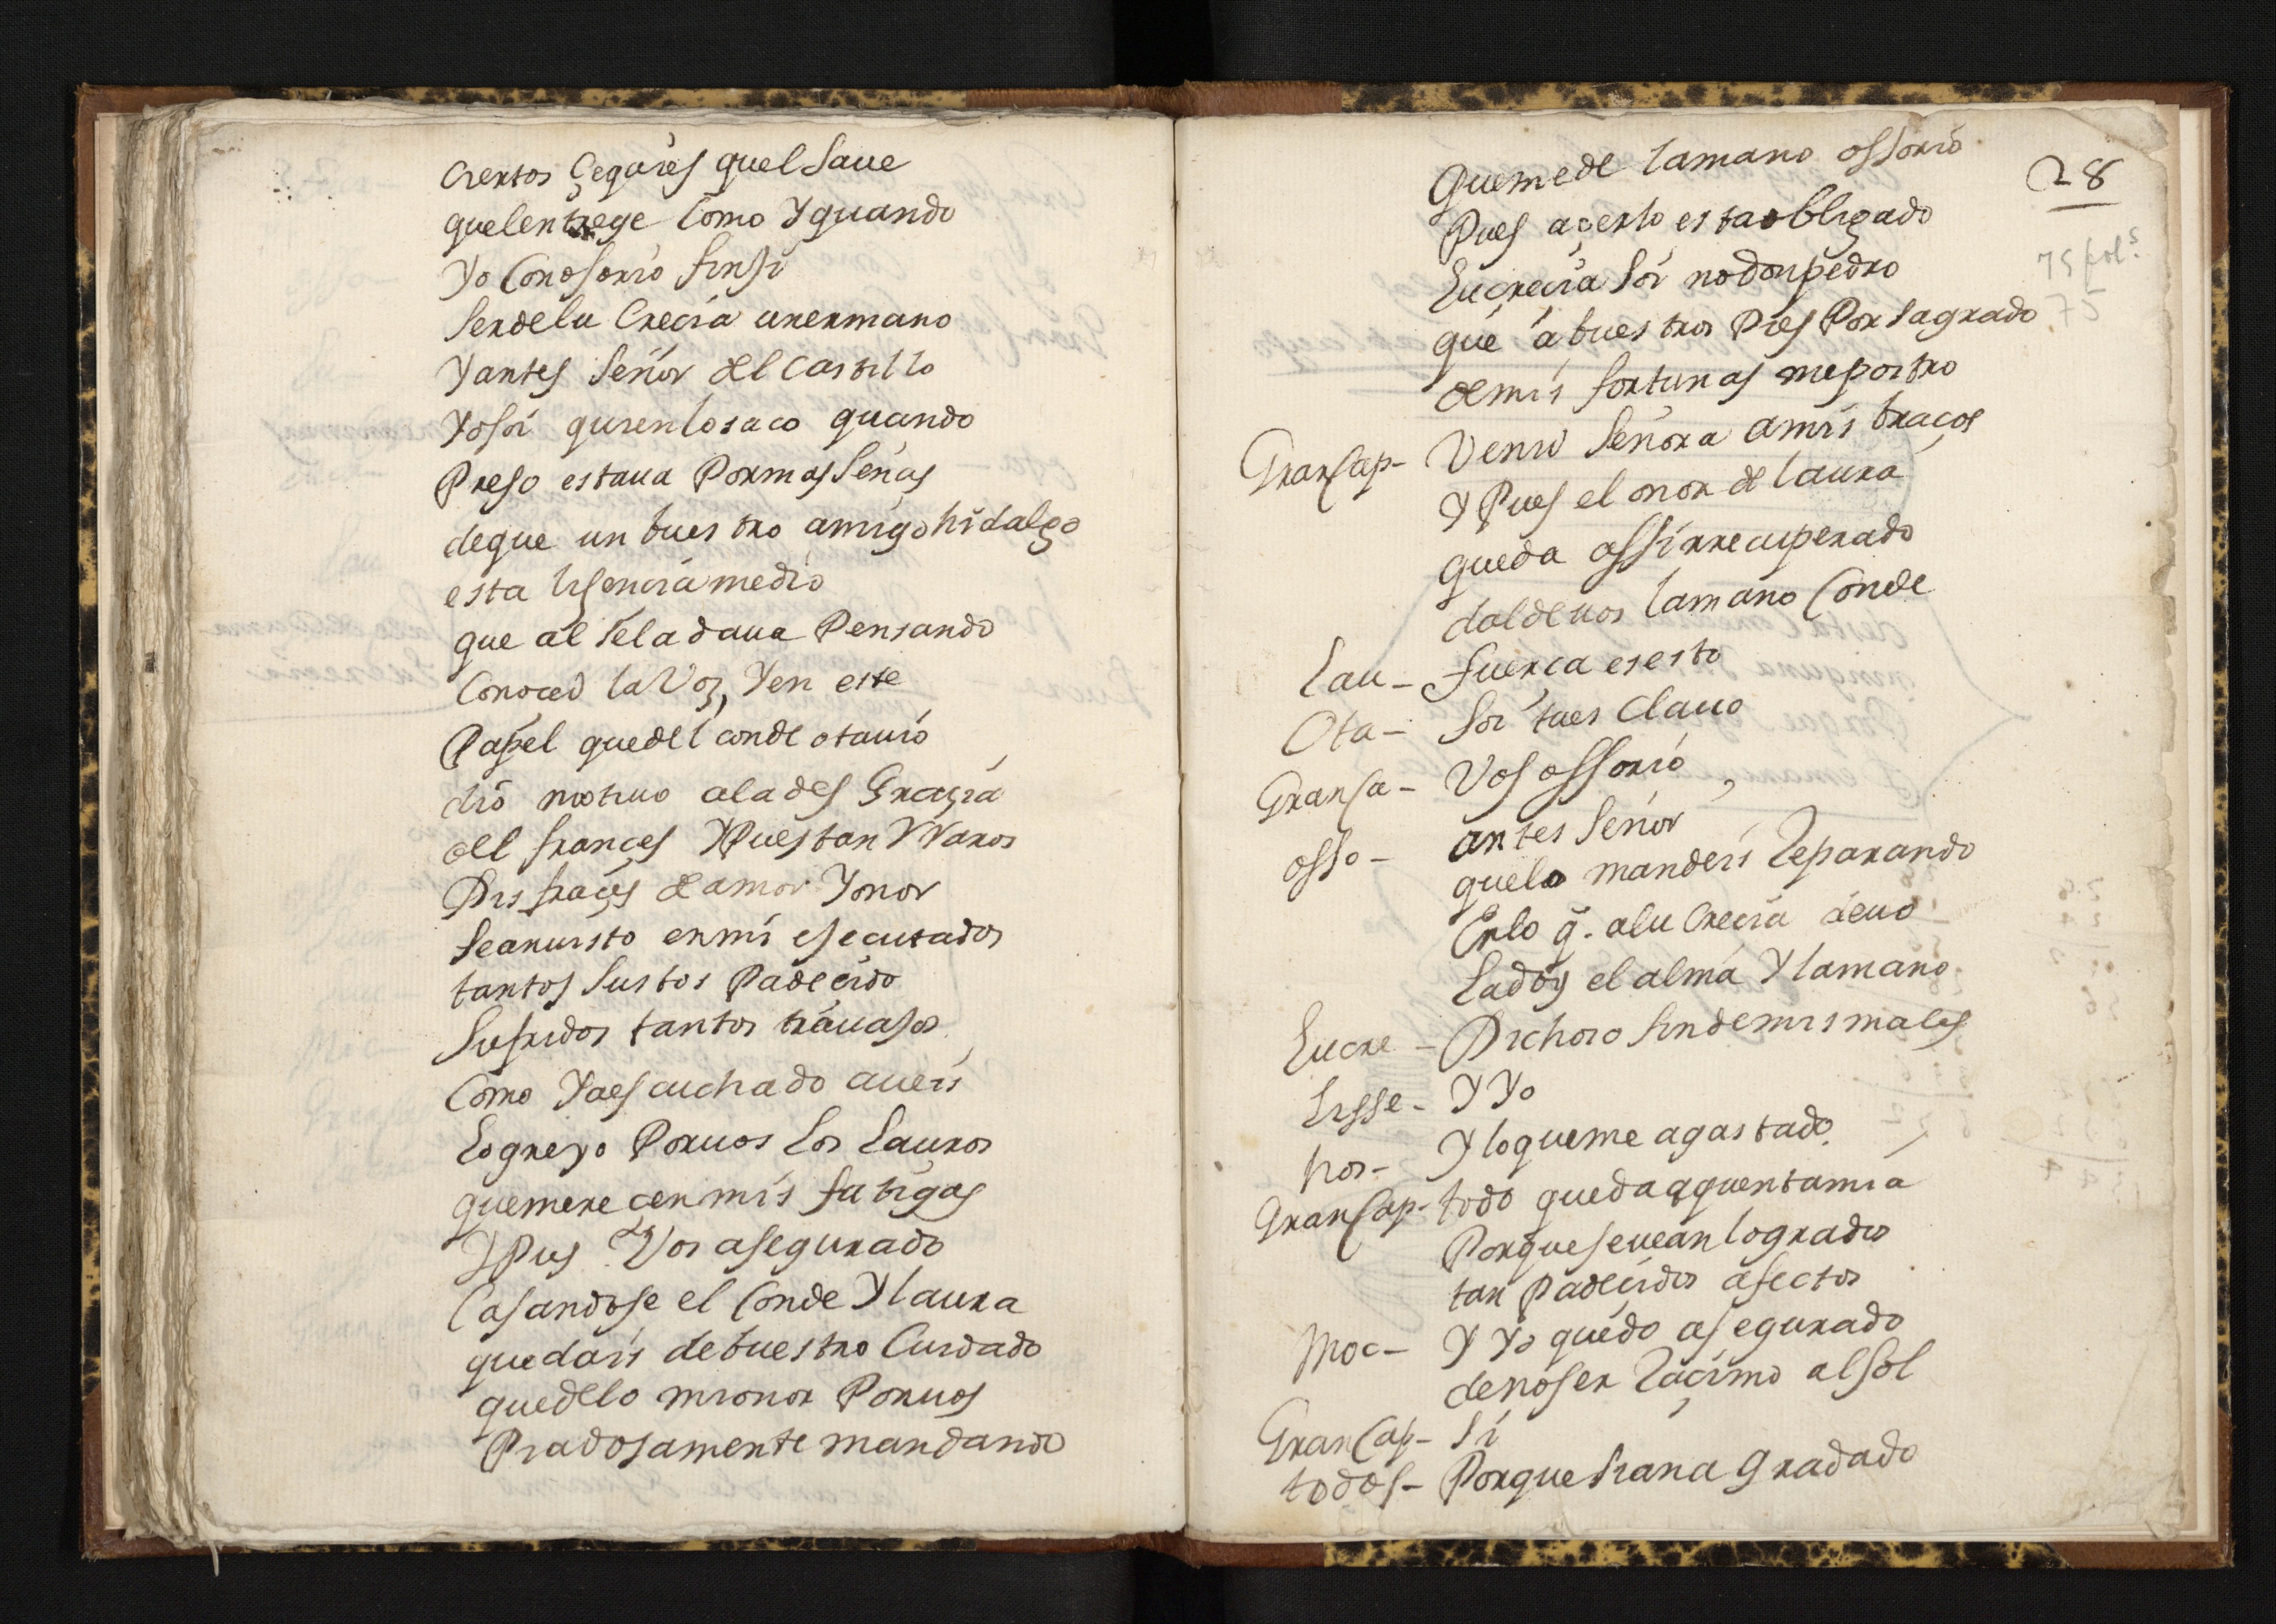 ciertos Çegures quel saue
quelentrege como Y quando
Yo Conosorio finfi
serdelu Crecia unermano
Yantes señor del castillo
Yosoi quienlosaco quando
Preso estaua Pormas señas
deque un buestro amigo hidalgo
esta lisencia medio
que al sela daua Pensando
Conoced la Voz, Yen este
Papel quedel conde otauio
dio motiuo ala des Graçia
del françes YPuestan Varos
Disfraçes de amor Yonor
seanuisto enmi ejecutados
tantos sustos Padecido
sufridos tantos trauajos
Como Yaescuchado aueis
Logreyo Poruos los Lauros
quemerecenmis fatigas
YPues Vos asegurado
Casandose el Conde Ylaura
quedais debuestro Cuidado
quedelo mionor Poruos
Piadosamente mandando
28
75 fol.s
75
Quemede lamano ossorio
Pues açerlo estaobligado
Lucrecia soi nodonpedro
que a buestros Pies Porsagrado
demis fortunas mepostro
GranCap- Venid señora amis braços
Y Pues el onor de laura
queda assi rrecuperado
daldeuos lamano Conde
Lau- fuerca es esto
Ota- soi tues clauo
GranCa- Vos ossorio
osso- antes señor
quelo mandeis Reparando
Enlo q. alu Crecia deuo
Ladoy el alma Y lamano
Lucre- Dichoso findemismales
Lisse- Y Yo
hos- Y loqueme agastado
GranCap- todo quedaaquentamia
Porquesevean logrados
tan Padecidos afectos
Moc- Y Yo quedo asegurado
denoser Racimo al sol
GranCap- si
todos- Porque siana Gradado